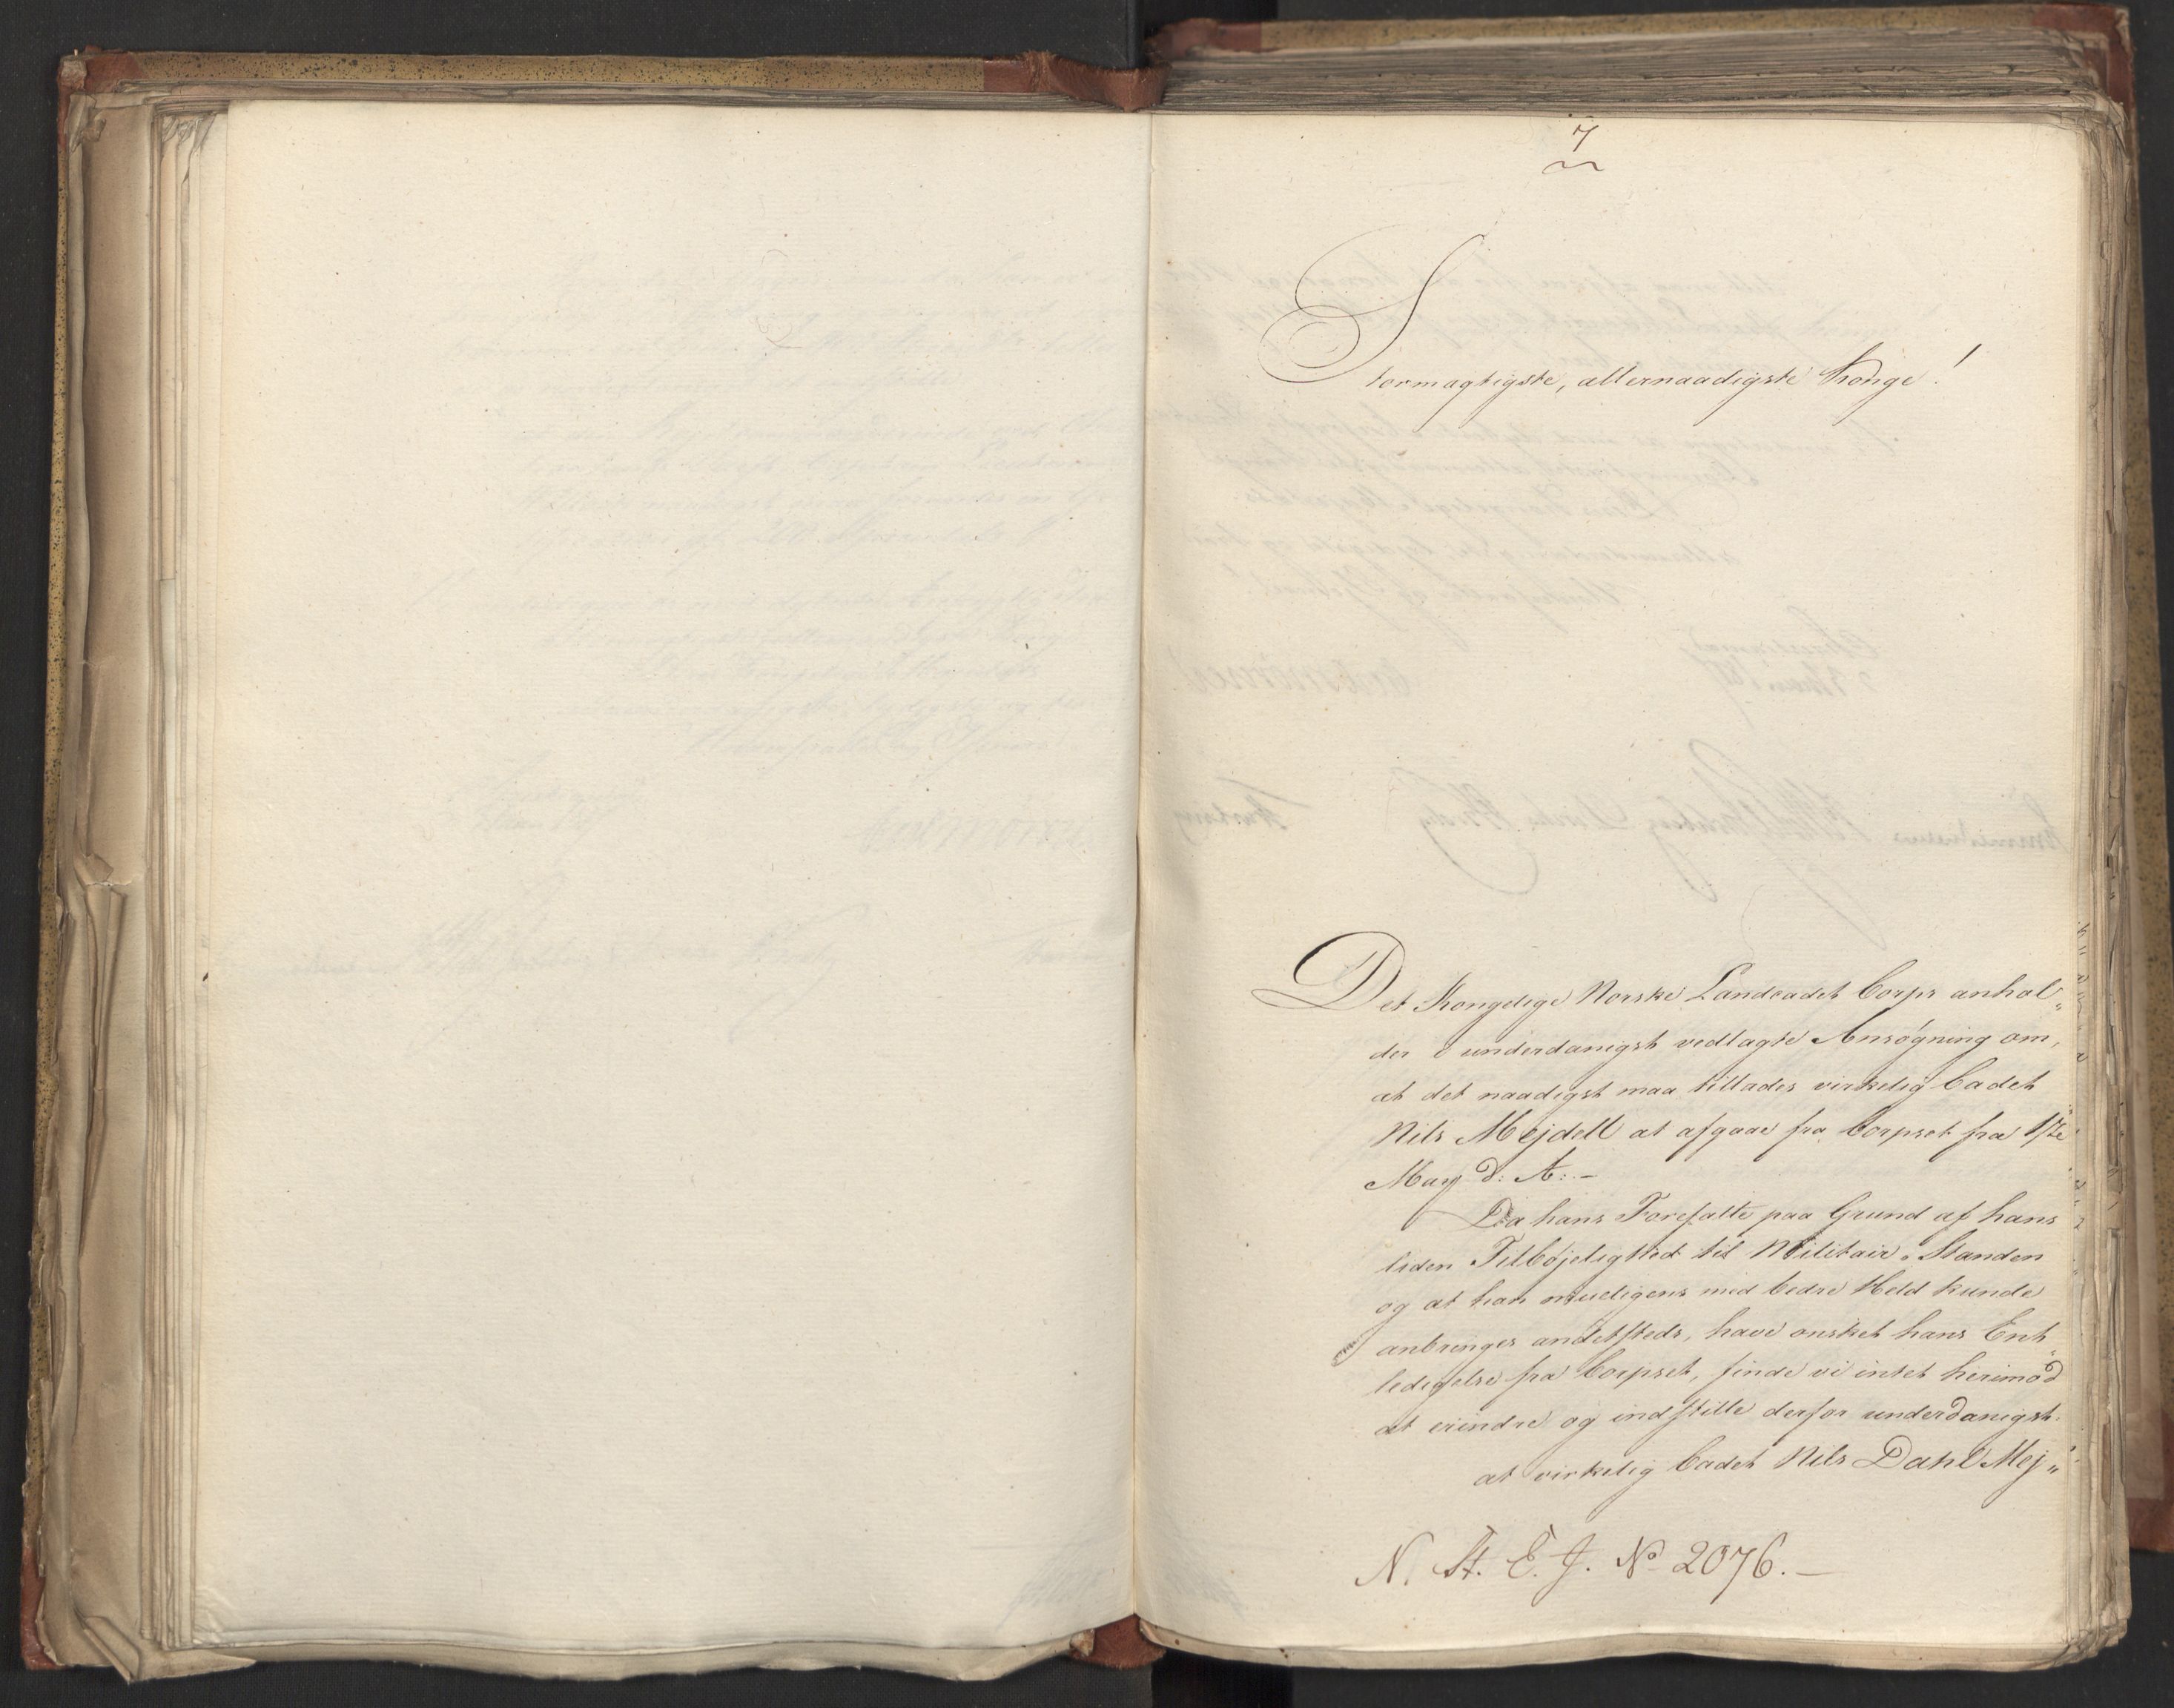 7
Stormægtigste, allernaadigste Konge!
Det Kongelige Norske Landcadet Corps anhol„
der i underdanigst vedlagte Ansøgning om,
at det naadigst maa tillades virkelig Cadet
Nils Mejdell at afgaae fra Corpset fra 1ste
May d: A: –
Da hans Foresatte paa Grund af hans
liden Tilbøjelighed til Militair-Standen
og at han mueligens med bedre Held kunde
anbringes andetsteds, have ønsket hans Ent„
ledigelse fra Corpset, finde vi intet herimod
at erindre og indstille derfor underdanigst:
at virkelig Cadet Nils Dahl Mej„
N. St. E. J. No 2076. –